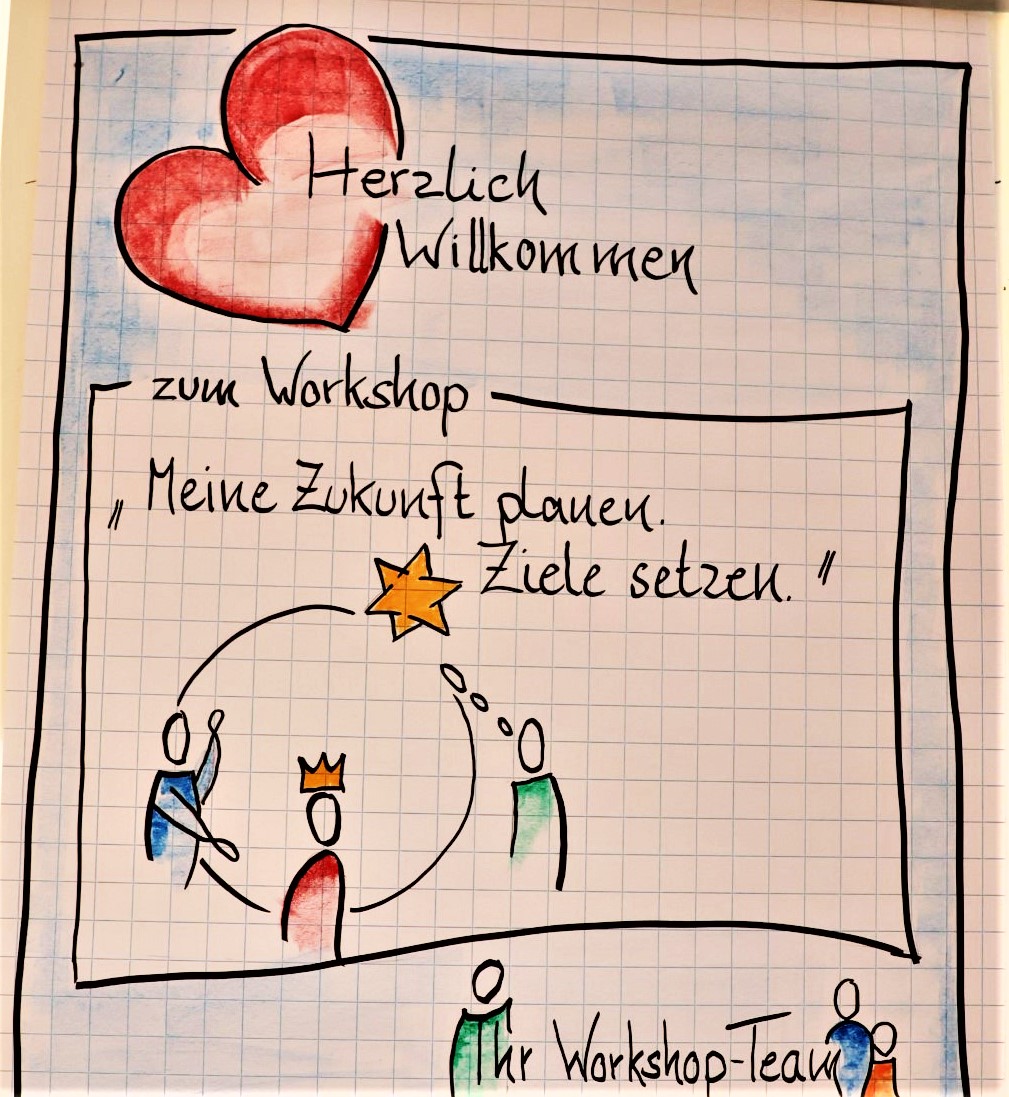 Herzlich
Willkommen
zum Workshop
„Meine Zukunft planen.
Ziele setzen."
Ihr Workshop-Team